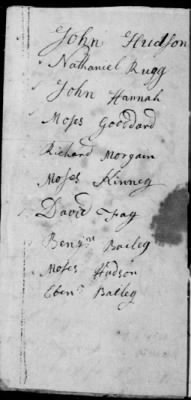 John Hudson
Nathaniel Rugg
John Hannah
Moses Goddard
Richard Morgain
Moses Kinney
David Fay
Benjn Bailey
Moses Hudson
Ebenr Bailey